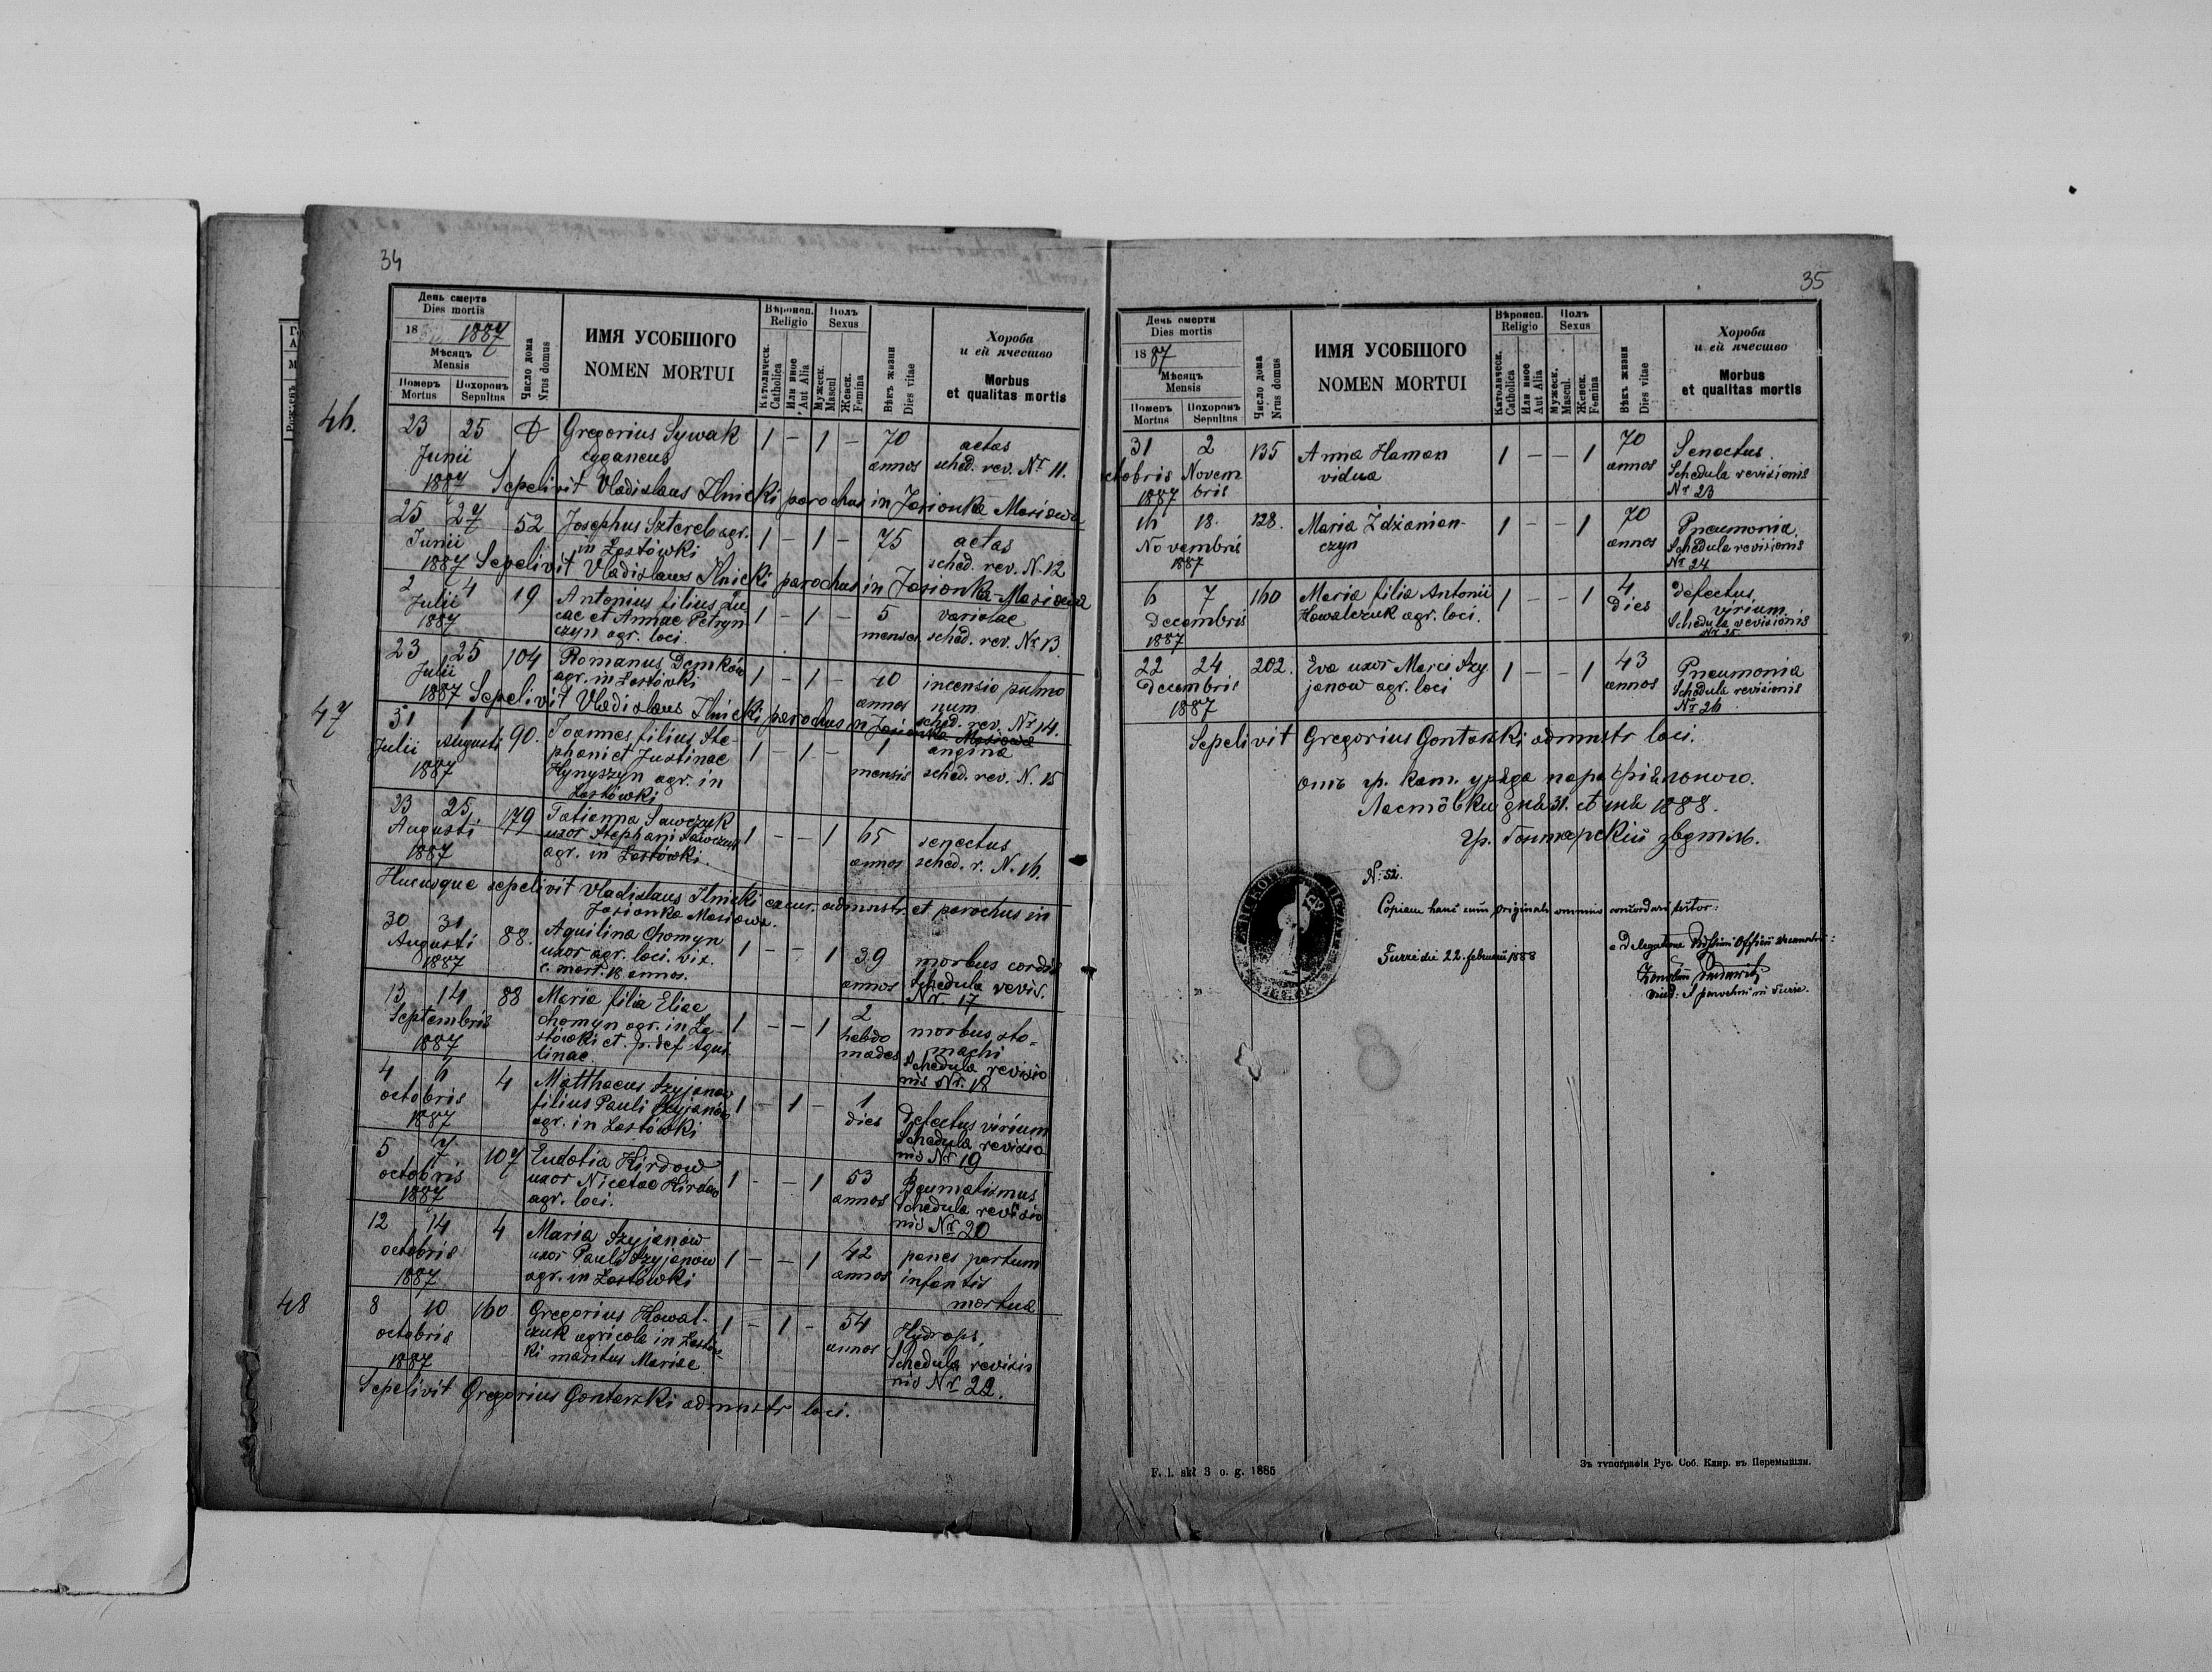 34
День смерти
Dies mortis
18 1887
Мѣсяцъ
Mensis
Померъ
Mortus
Похоронъ
Sepultus
Число дома
Nrus domus
ИМЯ УСОБШОГО
NOMEN MORTUI
Вѣроисп.
Religio
Католическ.
Catholica
Или иное
Aut Alia
Полъ
Sexus
Мужеск.
Mascul
Женск.
Femina
Вѣкъ жизни
Dies vitae
Хороба
и ей ячество
Morbus
et qualitas mortis
46.
23 25 Gregorius Sywak 1 – 1 – 70 aetas
Junii cyganeus annos sched. rev. Nr 11.
1887 Sepelivit Vladislaus Ilnicki parochus in Jasionka Masiowa
25 27 52 Josephus Sztereb agr. 1 – 1 – 75 aetas
Junii in Łastówki sched. rev. N. 12
1887 Sepelivit Vladislaus Ilnicki parochus in Jasionka-Masiowa
2 4 19 Antonius filius Lu- 1 – 1 – 5 variolae
Julii cae et Annae Petryn menses sched. rev. Nr 13.
1887 czyn agr. loci.
23 25 104 Romanus Demków 1 – 1 – 40 incensio pulmo
Julii agr. in Łastówki annos num
1887 Sepelivit Vladislaus Ilnicki parochus in Jasionka Masiowa sched. rev. Nr 14.
47
31 1 90. Joannes filius Ste- 1 – 1 – 1 angina
Julii Augusti phani et Justinae mensis sched. rev. N. 15
1887 Hynyszyn agr. in
Łastówki
23 25 179 Tatianna Sawczuk 1 – – 1 65 senectus
Augusti uxor Stephani Sawczuk annos sched. r. N. 16.
1887 agr. in Łastówki.
Hucusque sepelivit Vladislaus Ilnicki excur. admnstr. et parochus in
Jasionka Masiowa.
30 31 88. Aquilina Chomyn 1 – – 1 39 morbus cordis
Augusti uxor agr. loci. vix. annos Schedula revis.
1887 c. mart. 18 annos. Nr 17
13 14 88 Maria filia Eliae 1 – – 1 2 morbus sto-
Septembris Chomyn agr. in Ła- hebdo machi
1887 stówki et p. def Aqui- mades Schedula revisio
linae nis Nr. 18
4 6 4 Matthaeus Szyjanow 1 – 1 – 1 Defectus virium
octobris filius Pauli Szyjanów dies Schedula revisio
1887 agr. in Łastówki nis Nr 19
5 7 107 Eudotia Hirdow 1 – – 1 53 Reumatismus
octobris uxor Nicetae Hirdow annos Schedula revisio
1887 agr. loci. nis Nr 20
12 14 4 Maria Szyjanow 1 – – 1 42 penes partum
octobris uxor Pauli Szyjanow annos infantis
1887 agr. in Łastówki mortua
48
8 10 160 Gregorius Kowal- 1 – 1 – 54 Hydrops
octobris czuk agricola in Łastów- annos Schedula revisio
1887 ki maritus Mariae nis Nr 22.
Sepelivit Gregorius Gontarski admnstr loci.
35
День смерти
Dies mortis
1887
Мѣсяцъ
Mensis
Померъ
Mortus
Похоронъ
Sepultus
Число дома
Nrus domus
ИМЯ УСОБШОГО
NOMEN MORTUI
Вѣроисп.
Religio
Католическ.
Catholica
Или иное
Aut Alia
Полъ
Sexus
Мужеск.
Mascul.
Женск.
Femina
Вѣкъ жизни
Dies vitae
Хороба
и ей ячество
Morbus
et qualitas mortis
31 2 135 Anna Haman 1 – – 1 70 Senectus.
octobris Novem vidua annos Schedula revisionis
1887 bris Nr 23
16 18. 128. Maria Zdżanian- 1 – – 1 70 Pneumonia
Novembris czyn annos Schedula revisionis
1887 Nr 24
6 7 160 Maria filia Antonii 1 – – 1 4 defectus
Decembris Kowalczuk agr. loci. Dies virium
1887 Schedula revisionis
Nr 25
22 24 202. Eva uxor Marci Szy 1 – – 1 43 Pneumonia
Decembris janow agr. loci annos Schedula revisionis
1887 Nr 26
Sepelivit Gregorius Gontarski admnstr loci.
отъ гр. кат. уряда парафіяльного.
Ластôвки дня 31. 1888.
Гр. Гонтарскій
N: 52.
Copiam hanc cum originali omnino concordare testor:
Turze die 22. februarii 1888
parochus in Turze.
F. l. skł 3 o. g. 1885
Зъ типографіи Рус. Соб. Капр. въ Перемышли.